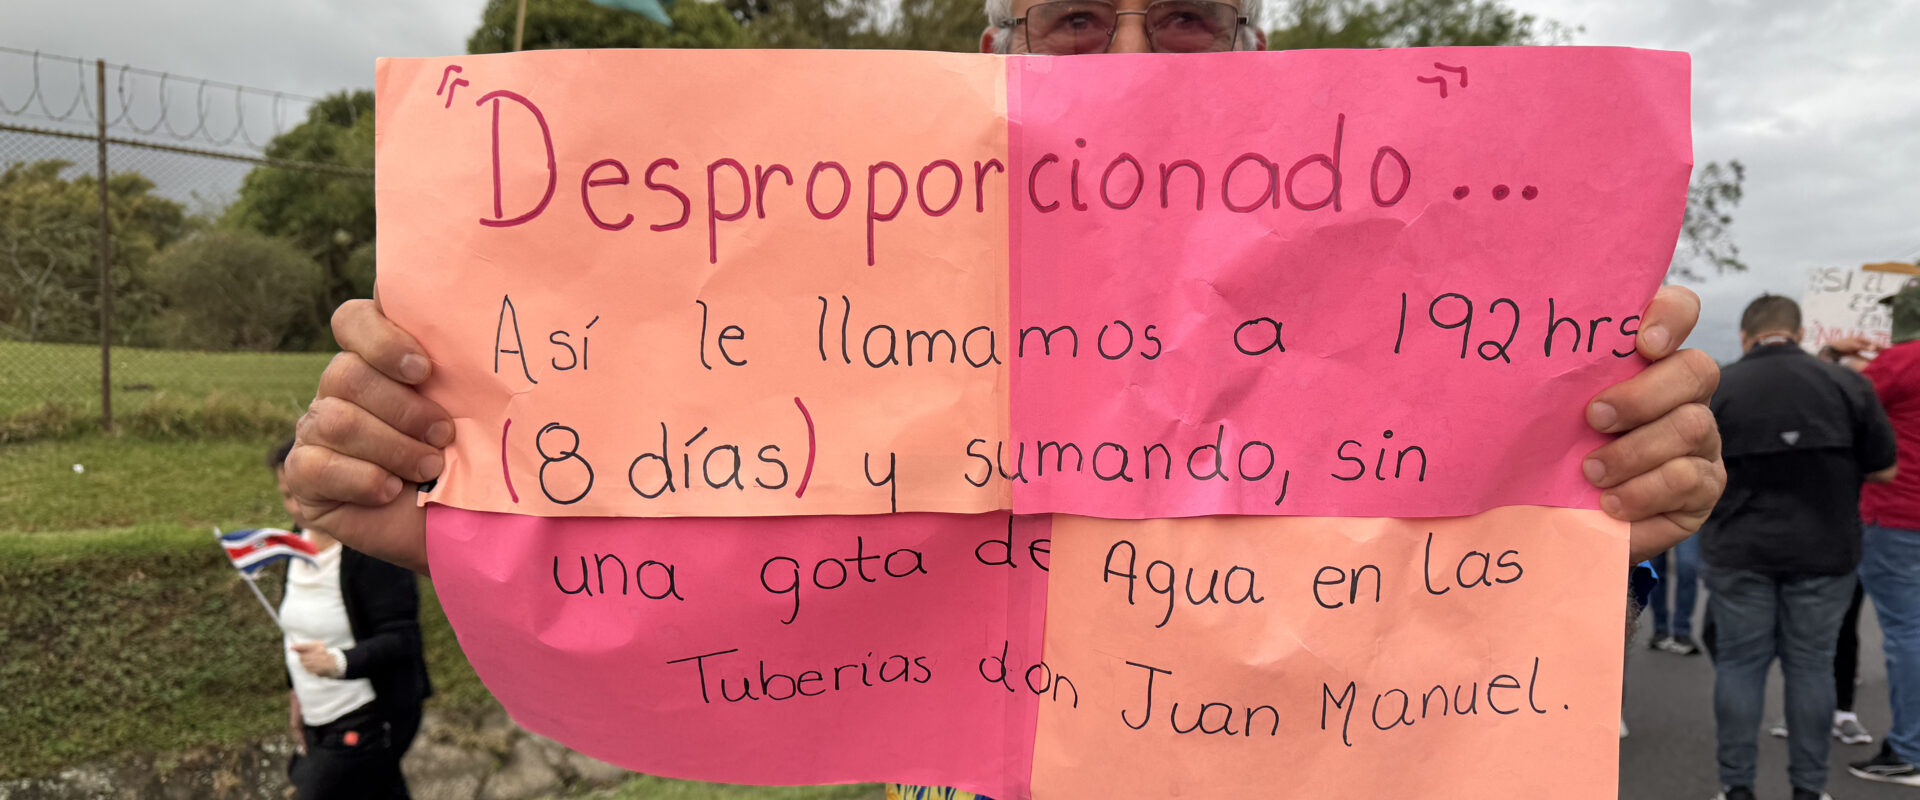 "Desproporcionado..."
Así le llamamos a 192hrs
(8 días) y sumando, sin
una gota de Agua en las
Tuberías don Juan Manuel.
¡SI EL